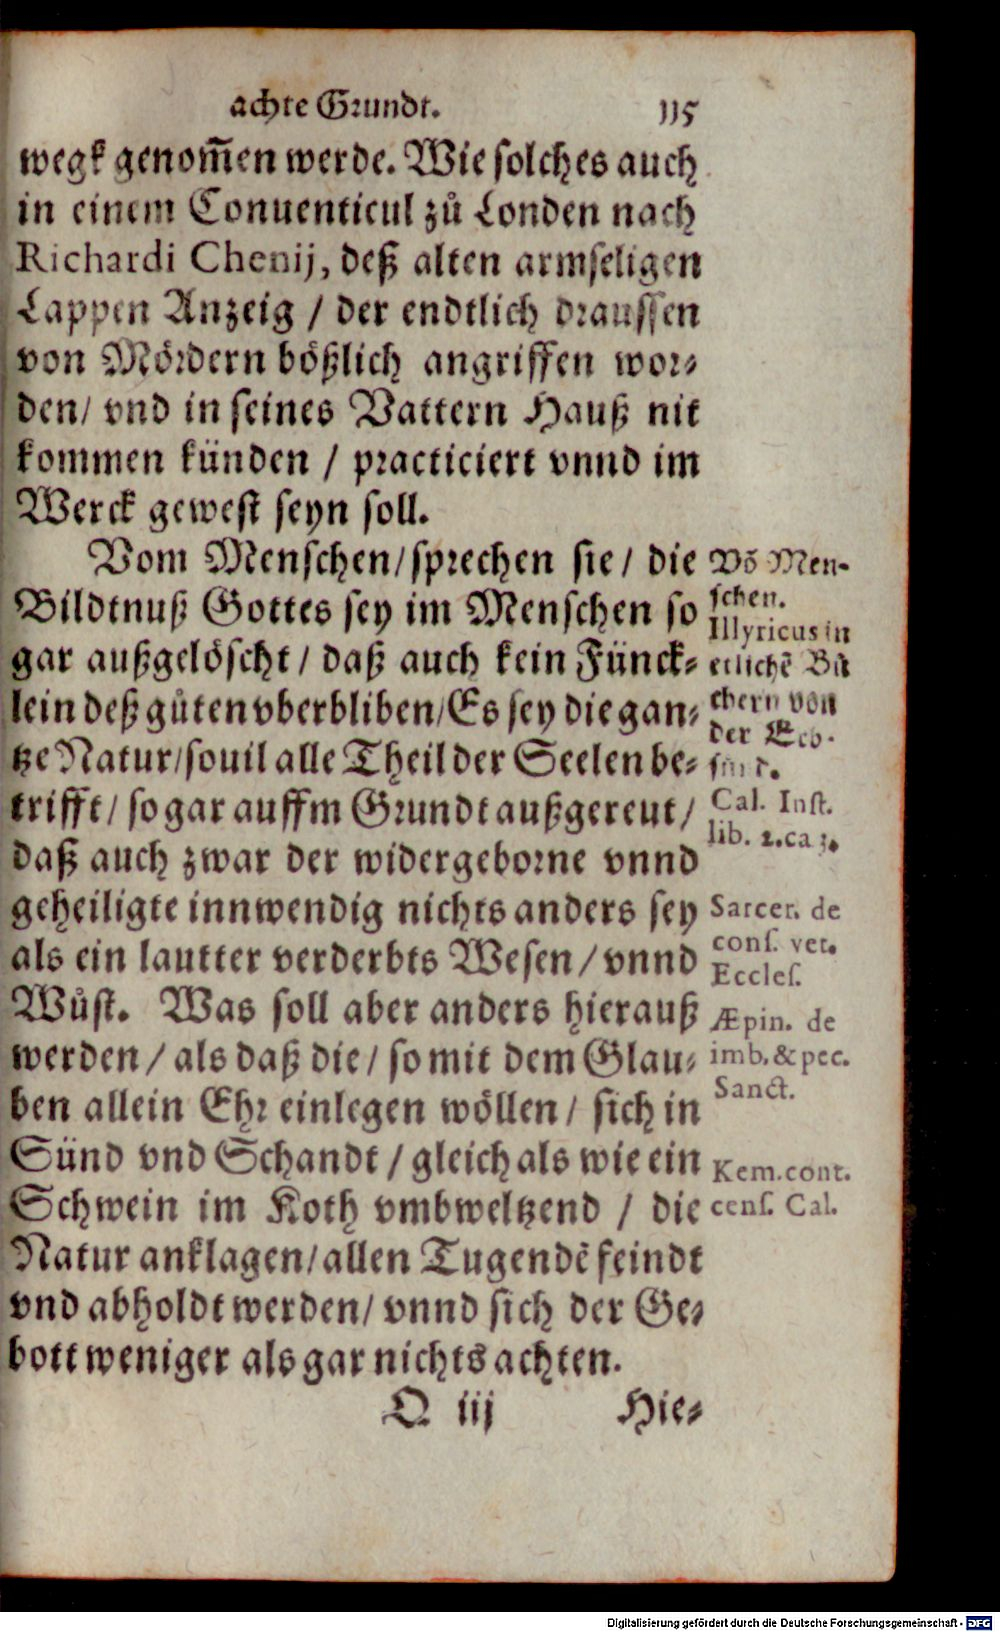 achte Grundt. 115
wegk genom̃en werde. Wie solches auch
in einem Conuenticul zů Londen nach
Richardi Chenij, deß alten armseligen
Lappen Anzeig / der endtlich draussen
von Mördern bößlich angriffen wor-
den/ vnd in seines Vattern Hauß nit
kommen künden / practiciert vnnd im
Werck gewest seyn soll.
Vom Menschen/ sprechen sie / die
Bildtnuß Gottes sey im Menschen so
gar außgelöscht / daß auch kein Fünck-
lein deß gůten vberbliben/ Es sey die gan-
tze Natur/ souil alle Theil der Seelen be-
trifft/ so gar auffm Grundt außgereut /
daß auch zwar der widergeborne vnnd
geheiligte innwendig nichts anders sey
als ein lautter verderbts Wesen / vnnd
Wůst. Was soll aber anders hierauß
werden / als daß die / so mit dem Glau-
ben allein Ehr einlegen wöllen / sich in
Sünd vnd Schandt / gleich als wie ein
Schwein im Koth vmbweltzend / die
Natur anklagen/ allen Tugendẽ feindt
vnd abholdt werden/ vnnd sich der Ge-
bott weniger als gar nichts achten.
Q iij Hie-
Võ Men-
schen.
Illyricus in
etlichẽ Bů
chern von
der Erb-
sünd.
Cal. Inst.
lib. 2. ca 3.
Sarcer. de
cons. vet.
Eccles.
Æpin. de
imb. & pec.
Sanct.
Kem. cont.
cens. Cal.
Digitalisierung gefördert durch die Deutsche Forschungsgemeinschaft - DFG